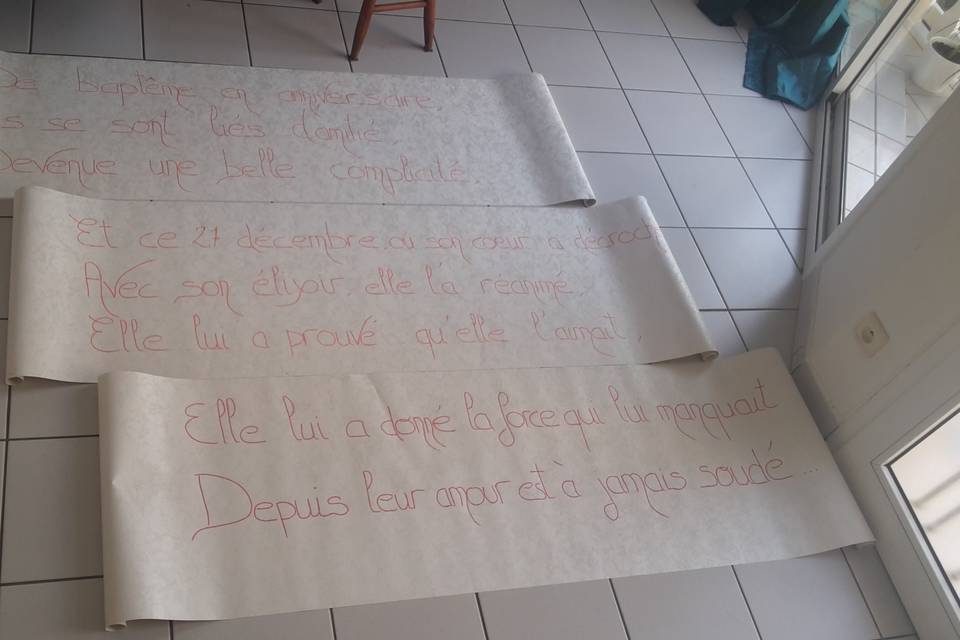 De baptême en anniversaire,
s se sont liés d'amitié
Devenue une belle complicité.
Et ce 27 décembre, où son coeur a décroch
Avec son élixir, elle l'a réanimé.
Elle lui a prouvé qu'elle l'aimait,
Elle lui a donné la force qui lui manquait
Depuis leur amour est à jamais soudé...